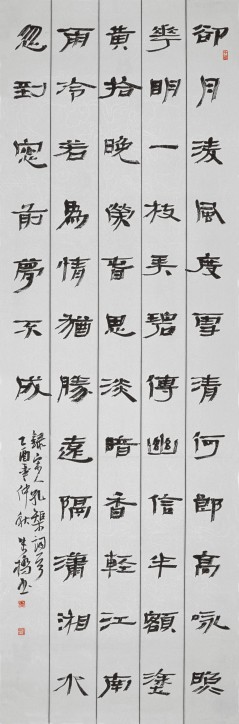 卻月淩風度雪清何郎高咏照
華明一枝弄碧傳幽信半額塗
黃拾晚榮春思淡暗香輕江南
雨冷若為情猶勝遠隔瀟湘水
忽到窗前夢不成
錄宋人孔榘詞
乙酉年仲秋